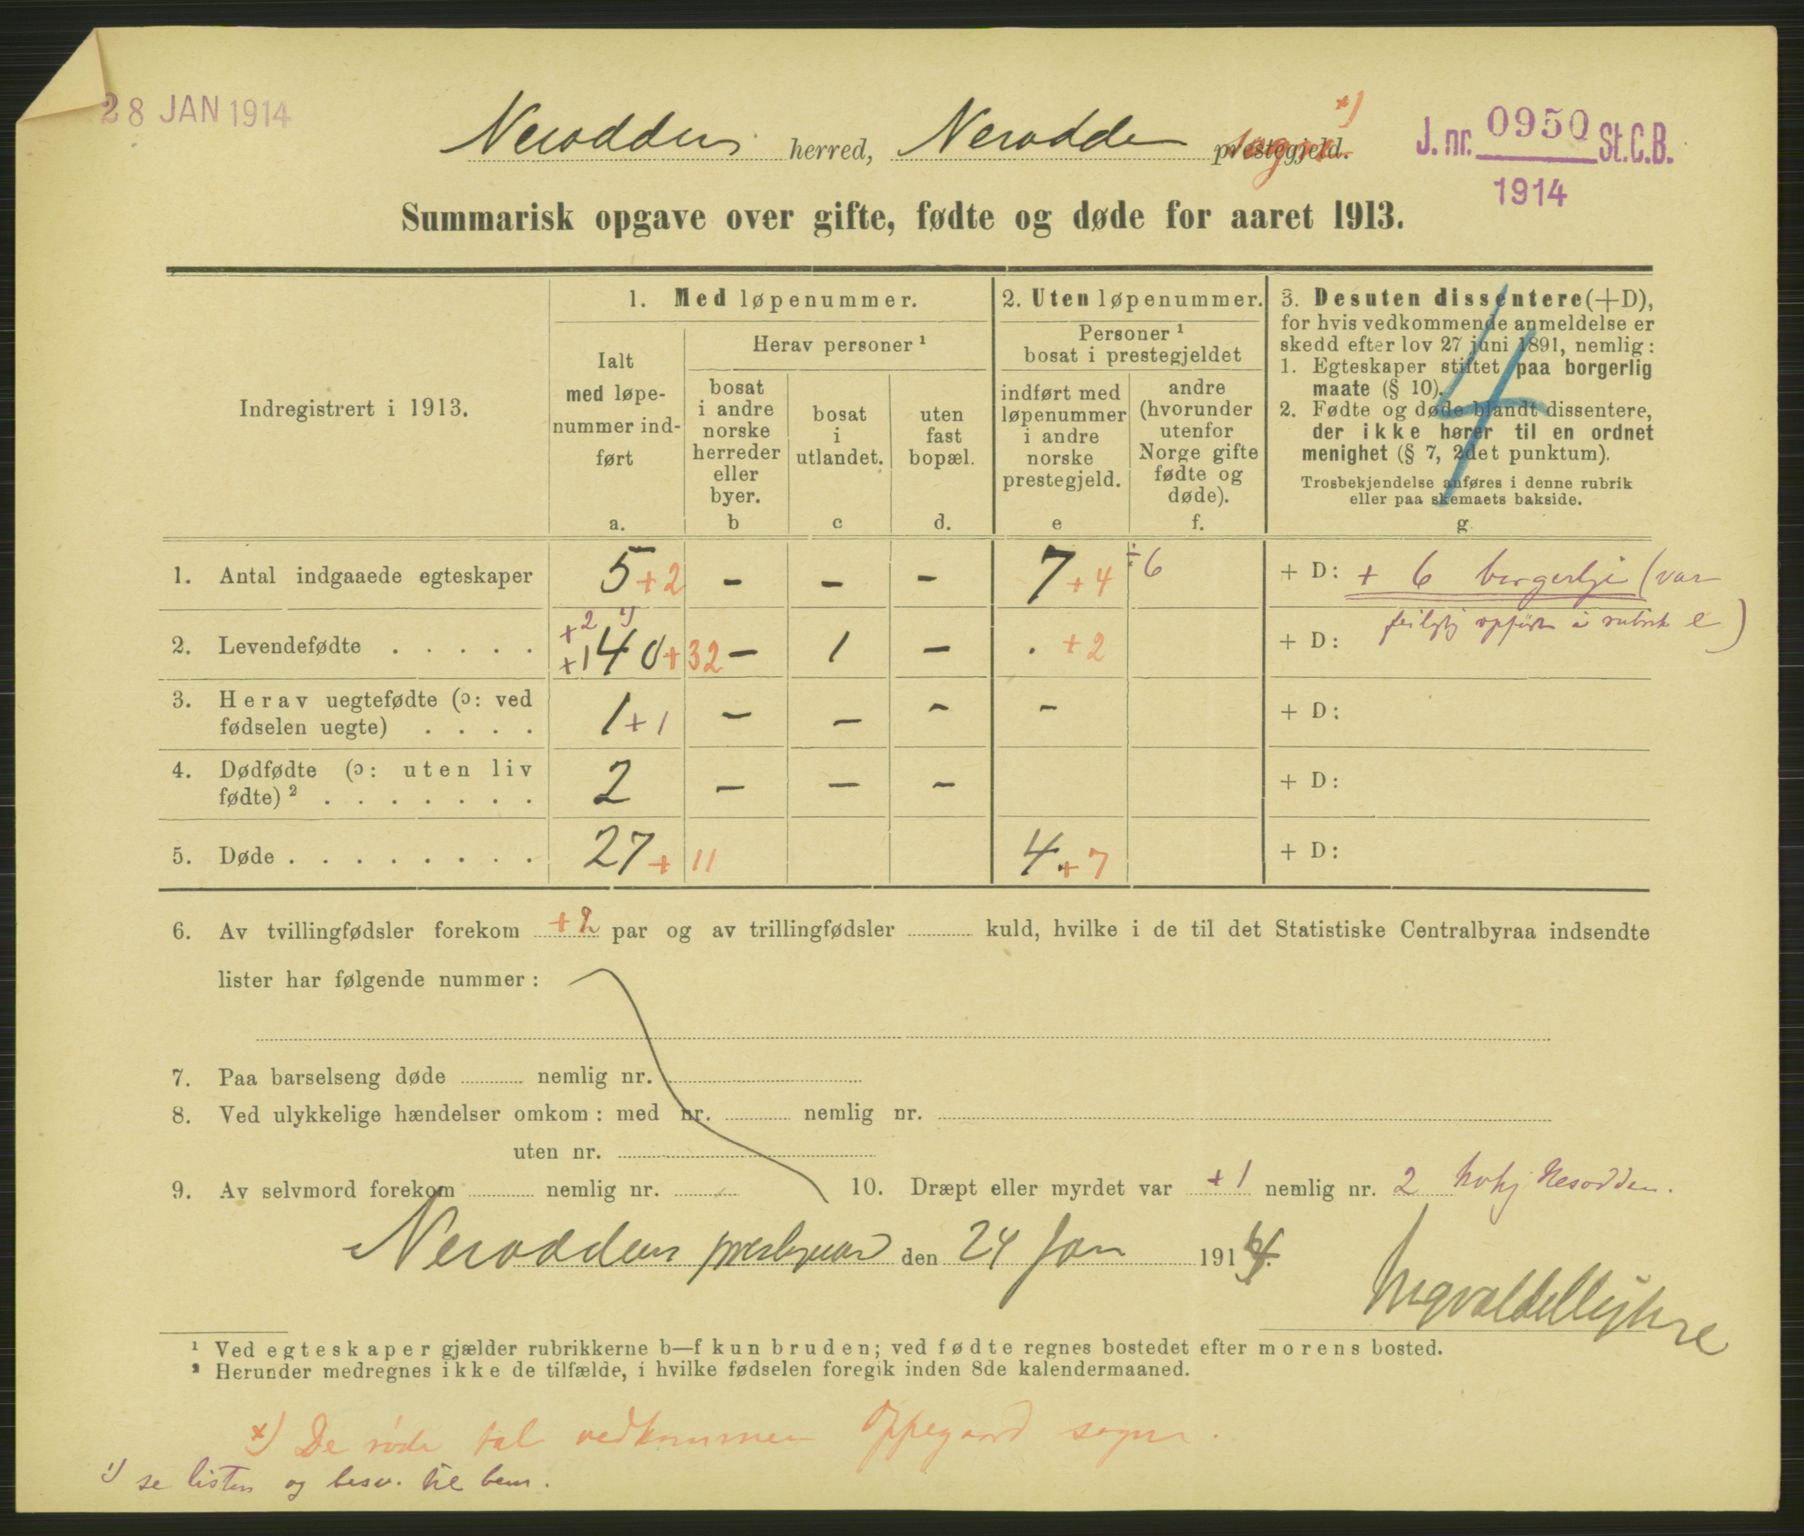 28 JAN 1914
Nesodden herred, Nesodden prestegjeld. sogn x)
J. nr. 0950 St.C.B.
1914
Summarisk opgave over gifte, fødte og døde for aaret 1913.
Indregistrert i 1913.
1. Med løpenummer.
Ialt
med løpe-
nummer ind-
ført
a.
Herav personer ¹
bosat
i andre
norske
herreder
eller
byer.
b
bosat
i
utlandet.
c
uten
fast
bopæl.
d.
2. Uten løpenummer.
Personer ¹
bosat i prestegjeldet
indført med
løpenummer
i andre
norske
prestegjeld.
e
andre
(hvorunder
utenfor
Norge gifte
fødte og
døde).
f.
3. Desuten dissentere (+D),
for hvis vedkommende anmeldelse er
skedd efter lov 27 juni 1891, nemlig:
1. Egteskaper stiftet paa borgerlig
maate (§ 10).
2. Fødte og døde blandt dissentere,
der ikke hører til en ordnet
menighet (§ 7, 2det punktum).
Trosbekjendelse anføres i denne rubrik
eller paa skemaets bakside.
g.
4
1. Antal indgaaede egteskaper 5 +2 – – – 7 +4 ÷6 + D: + 6 borgerlje (var
feilgtig opført i rubrik e)
2. Levendefødte . . . . . +2 ¹) +1 40 +32 – 1 – . +2 + D:
3. Herav uegtefødte (ɔ: ved
fødselen uegte) . . . . 1 +1 – – – – + D:
4. Dødfødte (ɔ: uten liv
fødte) ² . . . . . . . 2 – – – + D:
5. Døde . . . . . . . . 27 + 11 4. +7 + D:
6. Av tvillingfødsler forekom +2 par og av trillingfødsler kuld, hvilke i de til det Statistiske Centralbyraa indsendte
lister har følgende nummer:
7. Paa barselseng døde nemlig nr.
8. Ved ulykkelige hændelser omkom: med nr. nemlig nr.
uten nr.
9. Av selvmord forekom nemlig nr.
10. Dræpt eller myrdet var +1 nemlig nr. 2 hvkj Nesodden.
Nesodden den 24 Jan 1914.
¹ Ved egteskaper gjælder rubrikkerne b—f kun bruden; ved fødte regnes bostedet efter morens bosted.
² Herunder medregnes ikke de tilfælde, i hvilke fødselen foregik inden 8de kalendermaaned.
x) De røde tal vedkommer Oppegaard sogn.
¹) se listen og besv. til bem.